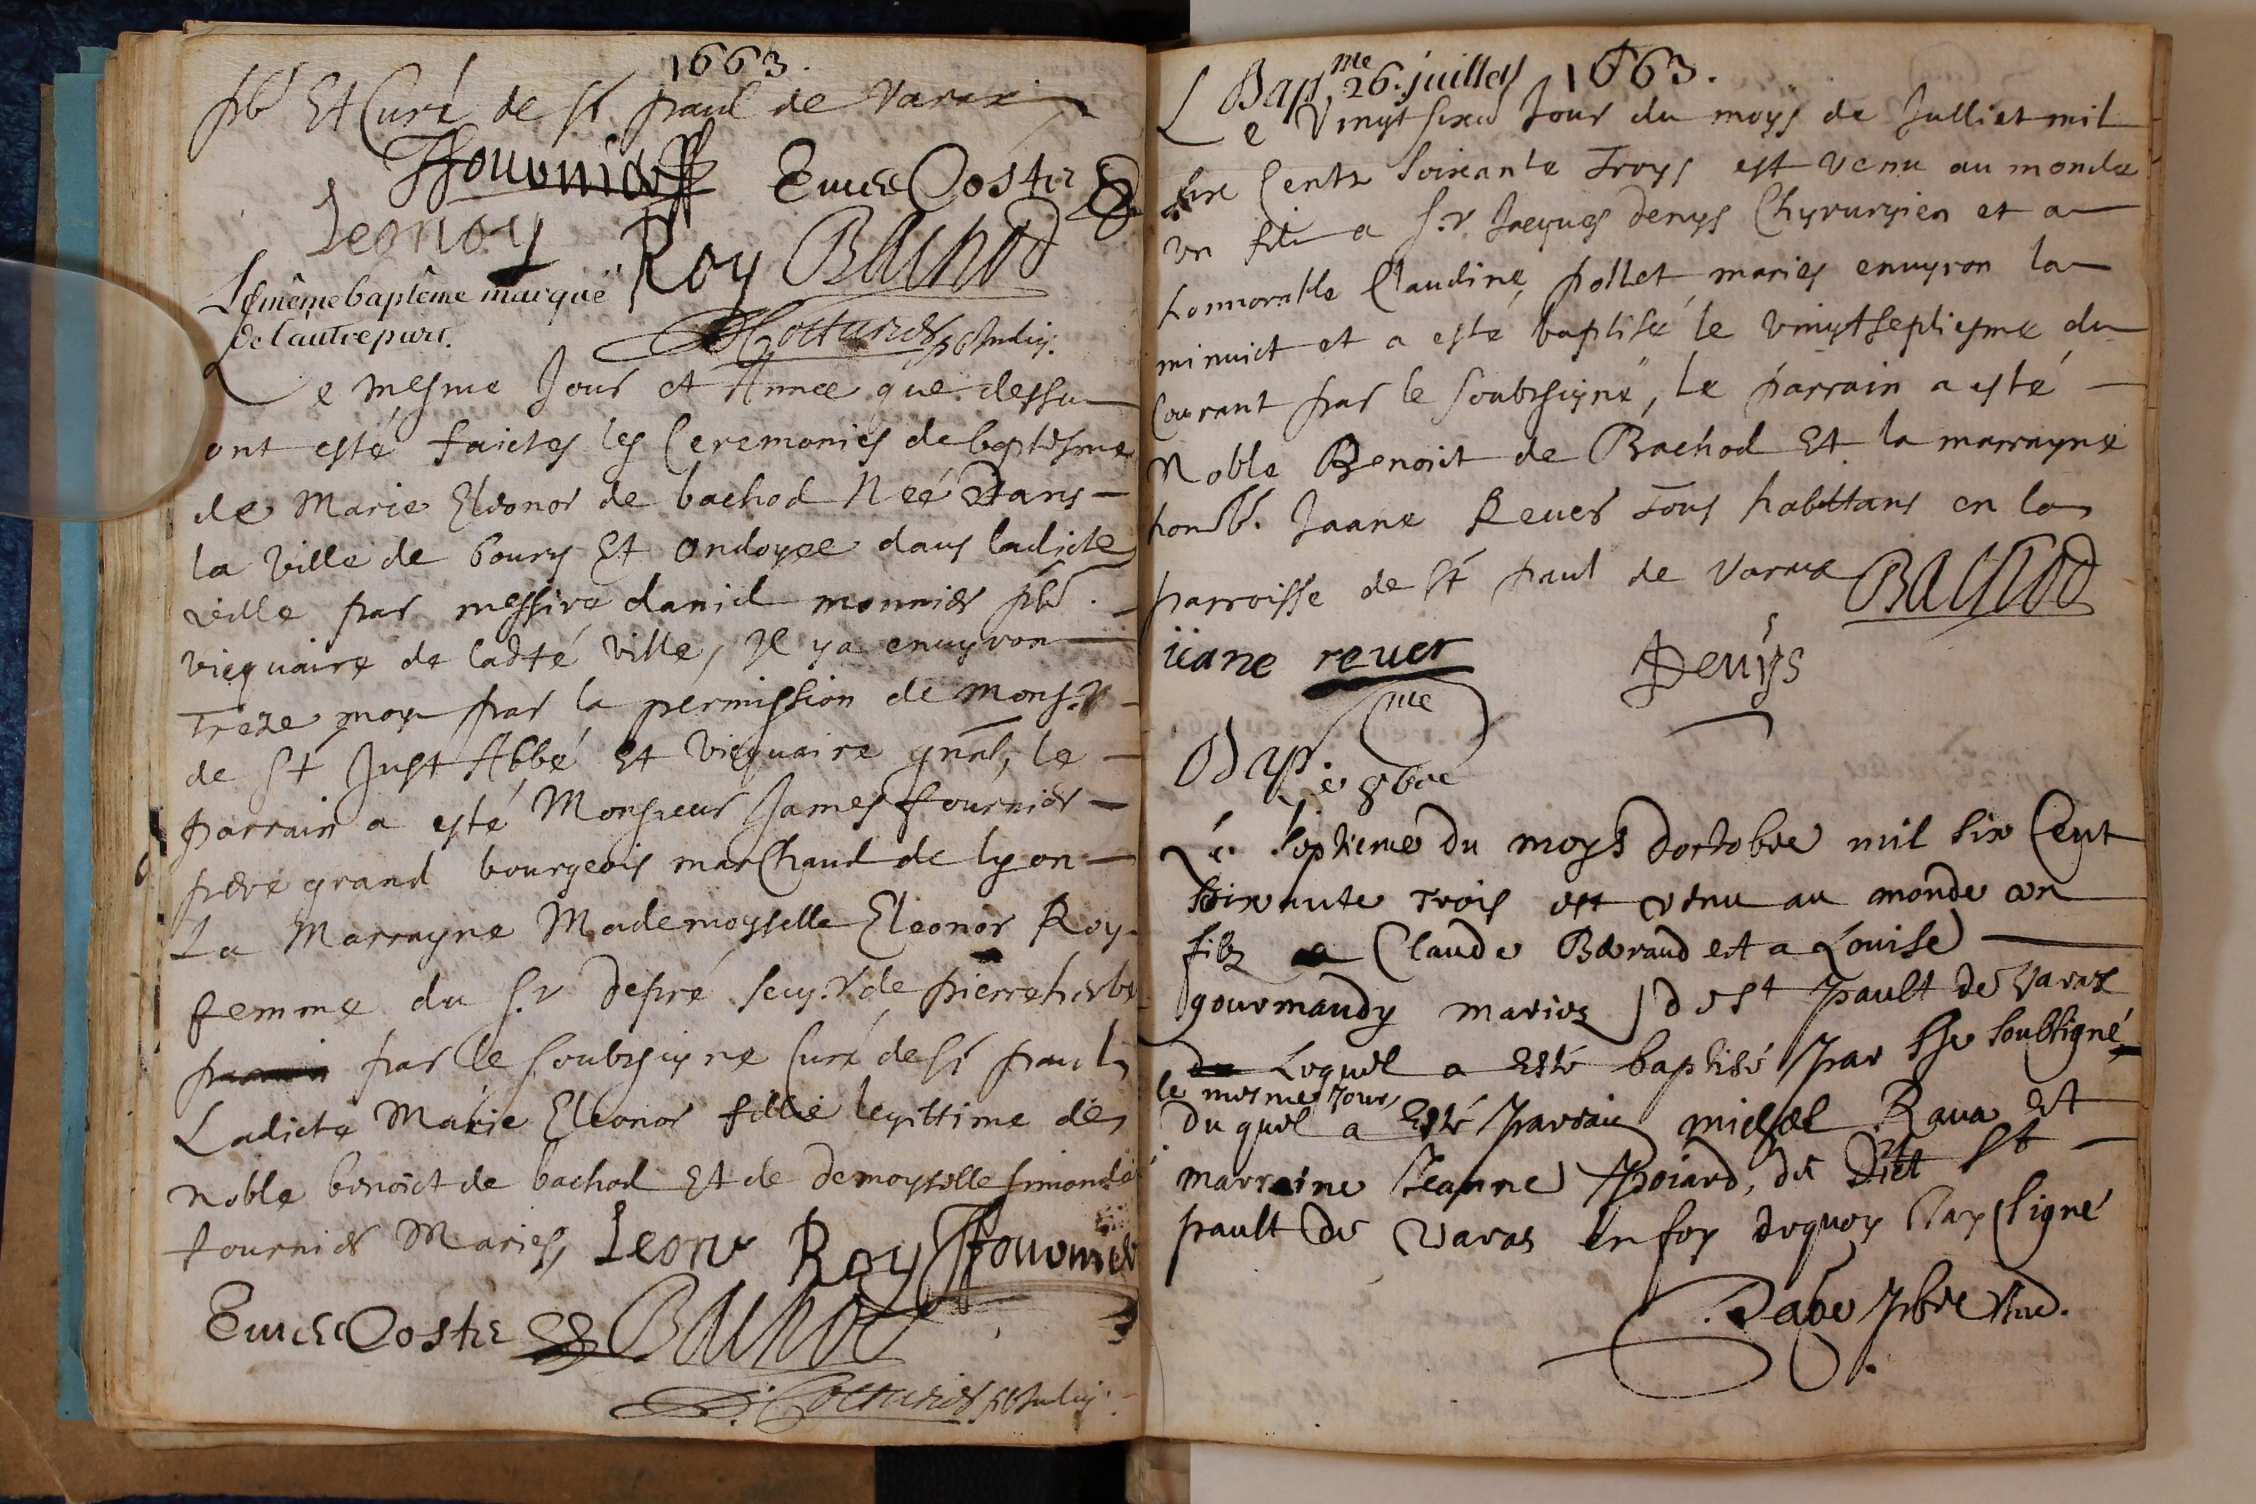 1663.
pbr Et Curé de st paul de Varax
Fournier Eme Coste
Leonor Roy Bachod
Le même baptême marqué
de l'autre part.
Cotturier
Le mesme Jour et Année que dessu
ont esté faictes les Ceremonies de baptesme
de Marie Eleonor de bachod Née Dans
la Ville de bourg Et ondoyee dans ladicte
ville par messire daniel monnier pbr.
vicquaire de ladte ville, Il y a enuyron
Treze moys par la permission de Monsr
de St Just Abbé Et Vicquaire gnal, le
parrain a esté Monsieur James fournier
pere grand bourgeois marchand de lyon
La Marrayne Mademoyselle Eleonor Roy
femme du Sr depré seigr de pierre
par le soubsigne Curé de st paul
Ladicte Marie Eleonor fillie legittime de
noble benoict de bachod Et de demoyselle Simonde
fournier Maries, Leonor Roy Fournier
Eme Coste Bachod
Cotturier
Bapme 26. juillet 1663.
Le Vingt sixe Jour du moys de Julliet mil
six Centz soixante Troys est venu au monde
vn filz a Sr Jacques denys Chyrurgien et a
honnorable Claudine pollet maries enuyron la
minuict et a esté baptisé le vingtseptiesme du
Courant par le soubsigné, le parrain a esté
Noble Benoict de Bachod Et la marrayne
honble. Jaane Reuer Tous habittans en la
parroisse de St paul de Varax Bachod
iiane reuer Denys
Bapme
8bre
Le septieme du moys doctobre mil six Cent
soixante trois est venu au monde vn
filz a Claude Beraud et a Louise
gourmandy mariez de st pault de Varax
Lequel a Esté baptisé par Ie soubsigné
le mesme jour
Duquel a Esté parrain michel Raua Et
marraine Jeanne poiard, du Dict St
pault de Varax en foy dequoy Iay signé
pbre